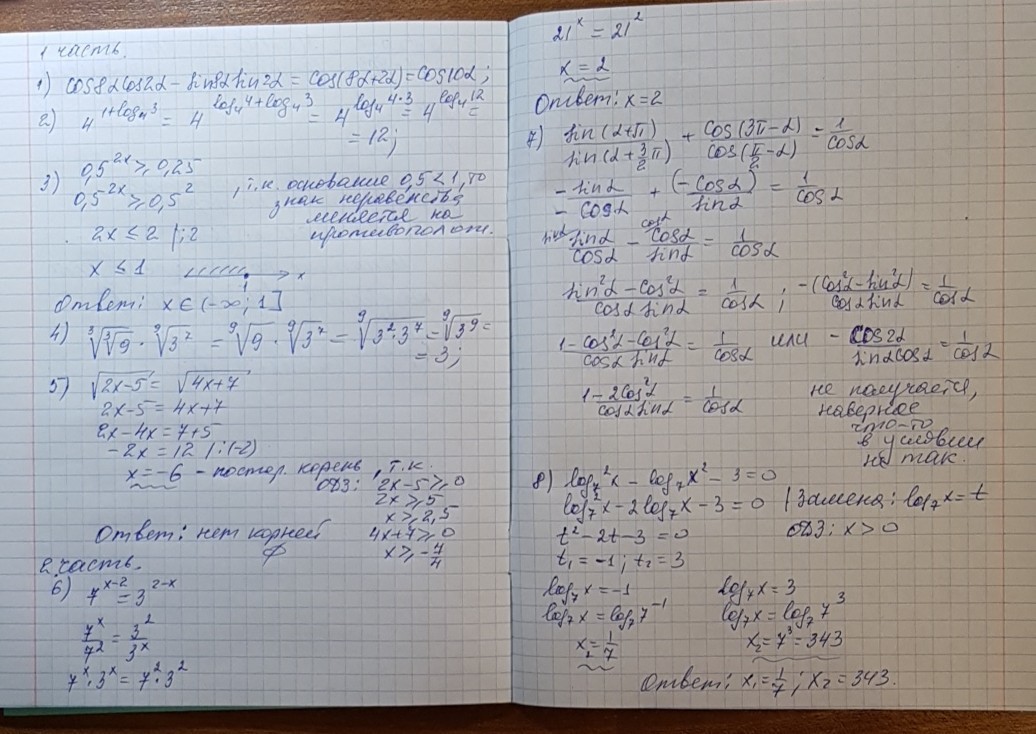 1 часть.
1) cos8α cos2α − sin8α sin2α = cos(8α+2α) = cos10α;
2) 4^(1+log₄3) = 4^(log₄4+log₄3) = 4^(log₄4·3) = 4^(log₄12) =
= 12;
3) 0,5^(2x) ≥ 0,25
0,5^(2x) ≥ 0,5² , т.к. основание 0,5<1, то
знак неравенства
меняется на
противополож.
2x ≤ 2 |:2
x ≤ 1
x
1
Ответ: x ∈ (−∞; 1]
4) ∛∛9 · ⁹√3⁷ = ⁹√9 · ⁹√3⁷ = ⁹√(3²·3⁷) = ⁹√3⁹ =
= 3;
5) √(2x−5) = √(4x+7)
2x−5 = 4x+7
2x−4x = 7+5
−2x = 12 |:(−2)
x = −6 – постор. корень, т.к.
ОДЗ: 2x−5 ≥ 0
2x ≥ 5
x ≥ 2,5
4x+7 ≥ 0
x ≥ −7/4
Ответ: нет корней
∅
2 часть.
6) 7^(x−2) = 3^(2−x)
7^x/7² = 3²/3^x
7^x · 3^x = 7² · 3²
21^x = 21²
x = 2
Ответ: x = 2
7) sin(α+π)/sin(α+3/2π) + cos(3π−α)/cos(π/2−α) = 1/cosα
−sinα/−cosα + (−cosα)/sinα = 1/cosα
sinα sinα/cosα − cosα cosα/sinα = 1/cosα
(sin²α − cos²α)/(cosα sinα) = 1/cosα ; −(cos²α − sin²α)/(cosα sinα) = 1/cosα
(1−cos²α−cos²α)/(cosα sinα) = 1/cosα или −cos2α/(sinα cosα) = 1/cosα
(1−2cos²α)/(cosα sinα) = 1/cosα
не получается,
наверное
что-то
в условии
не так.
8) log₇²x − log₇x² − 3 = 0
log₇²x − 2log₇x − 3 = 0 | Замена: log₇x = t
t² − 2t − 3 = 0 ОДЗ: x > 0
t₁ = −1; t₂ = 3
log₇x = −1 log₇x = 3
log₇x = log₇7⁻¹ log₇x = log₇7³
x₁ = 1/7 x₂ = 7³ = 343
Ответ: x₁ = 1/7; x₂ = 343.